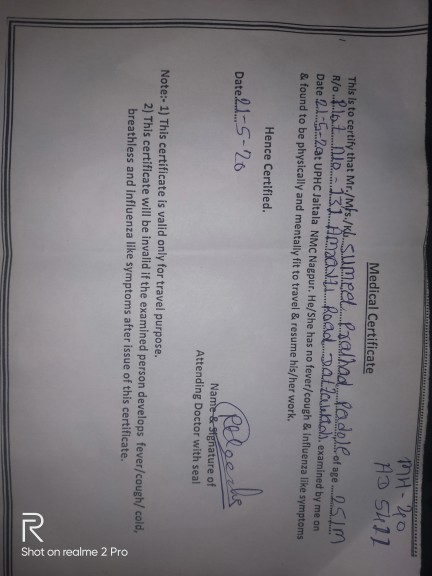 MH-40
AB 5411
Medical Certificate
This is to certify that Mr./Mrs./ku. Sumeet Pralhad Padole of age 25/M
R/o. Plot No - 131 Road examined by me on
Date 21-5-20 at UPHC Jaitala NMC Nagpur. He/She has no fever/cough & influenza like symptoms
& found to be physically and mentally fit to travel & resume his/her work.
Hence Certified.
Date 21-5-20
Name & Signature of
Attending Doctor with seal
Note:- 1) This certificate is valid only for travel purpose.
2) This certificate will be invalid if the examined person develops fever/cough/ cold,
breathless and Influenza like symptoms after issue of this certificate.
R
Shot on realme 2 Pro